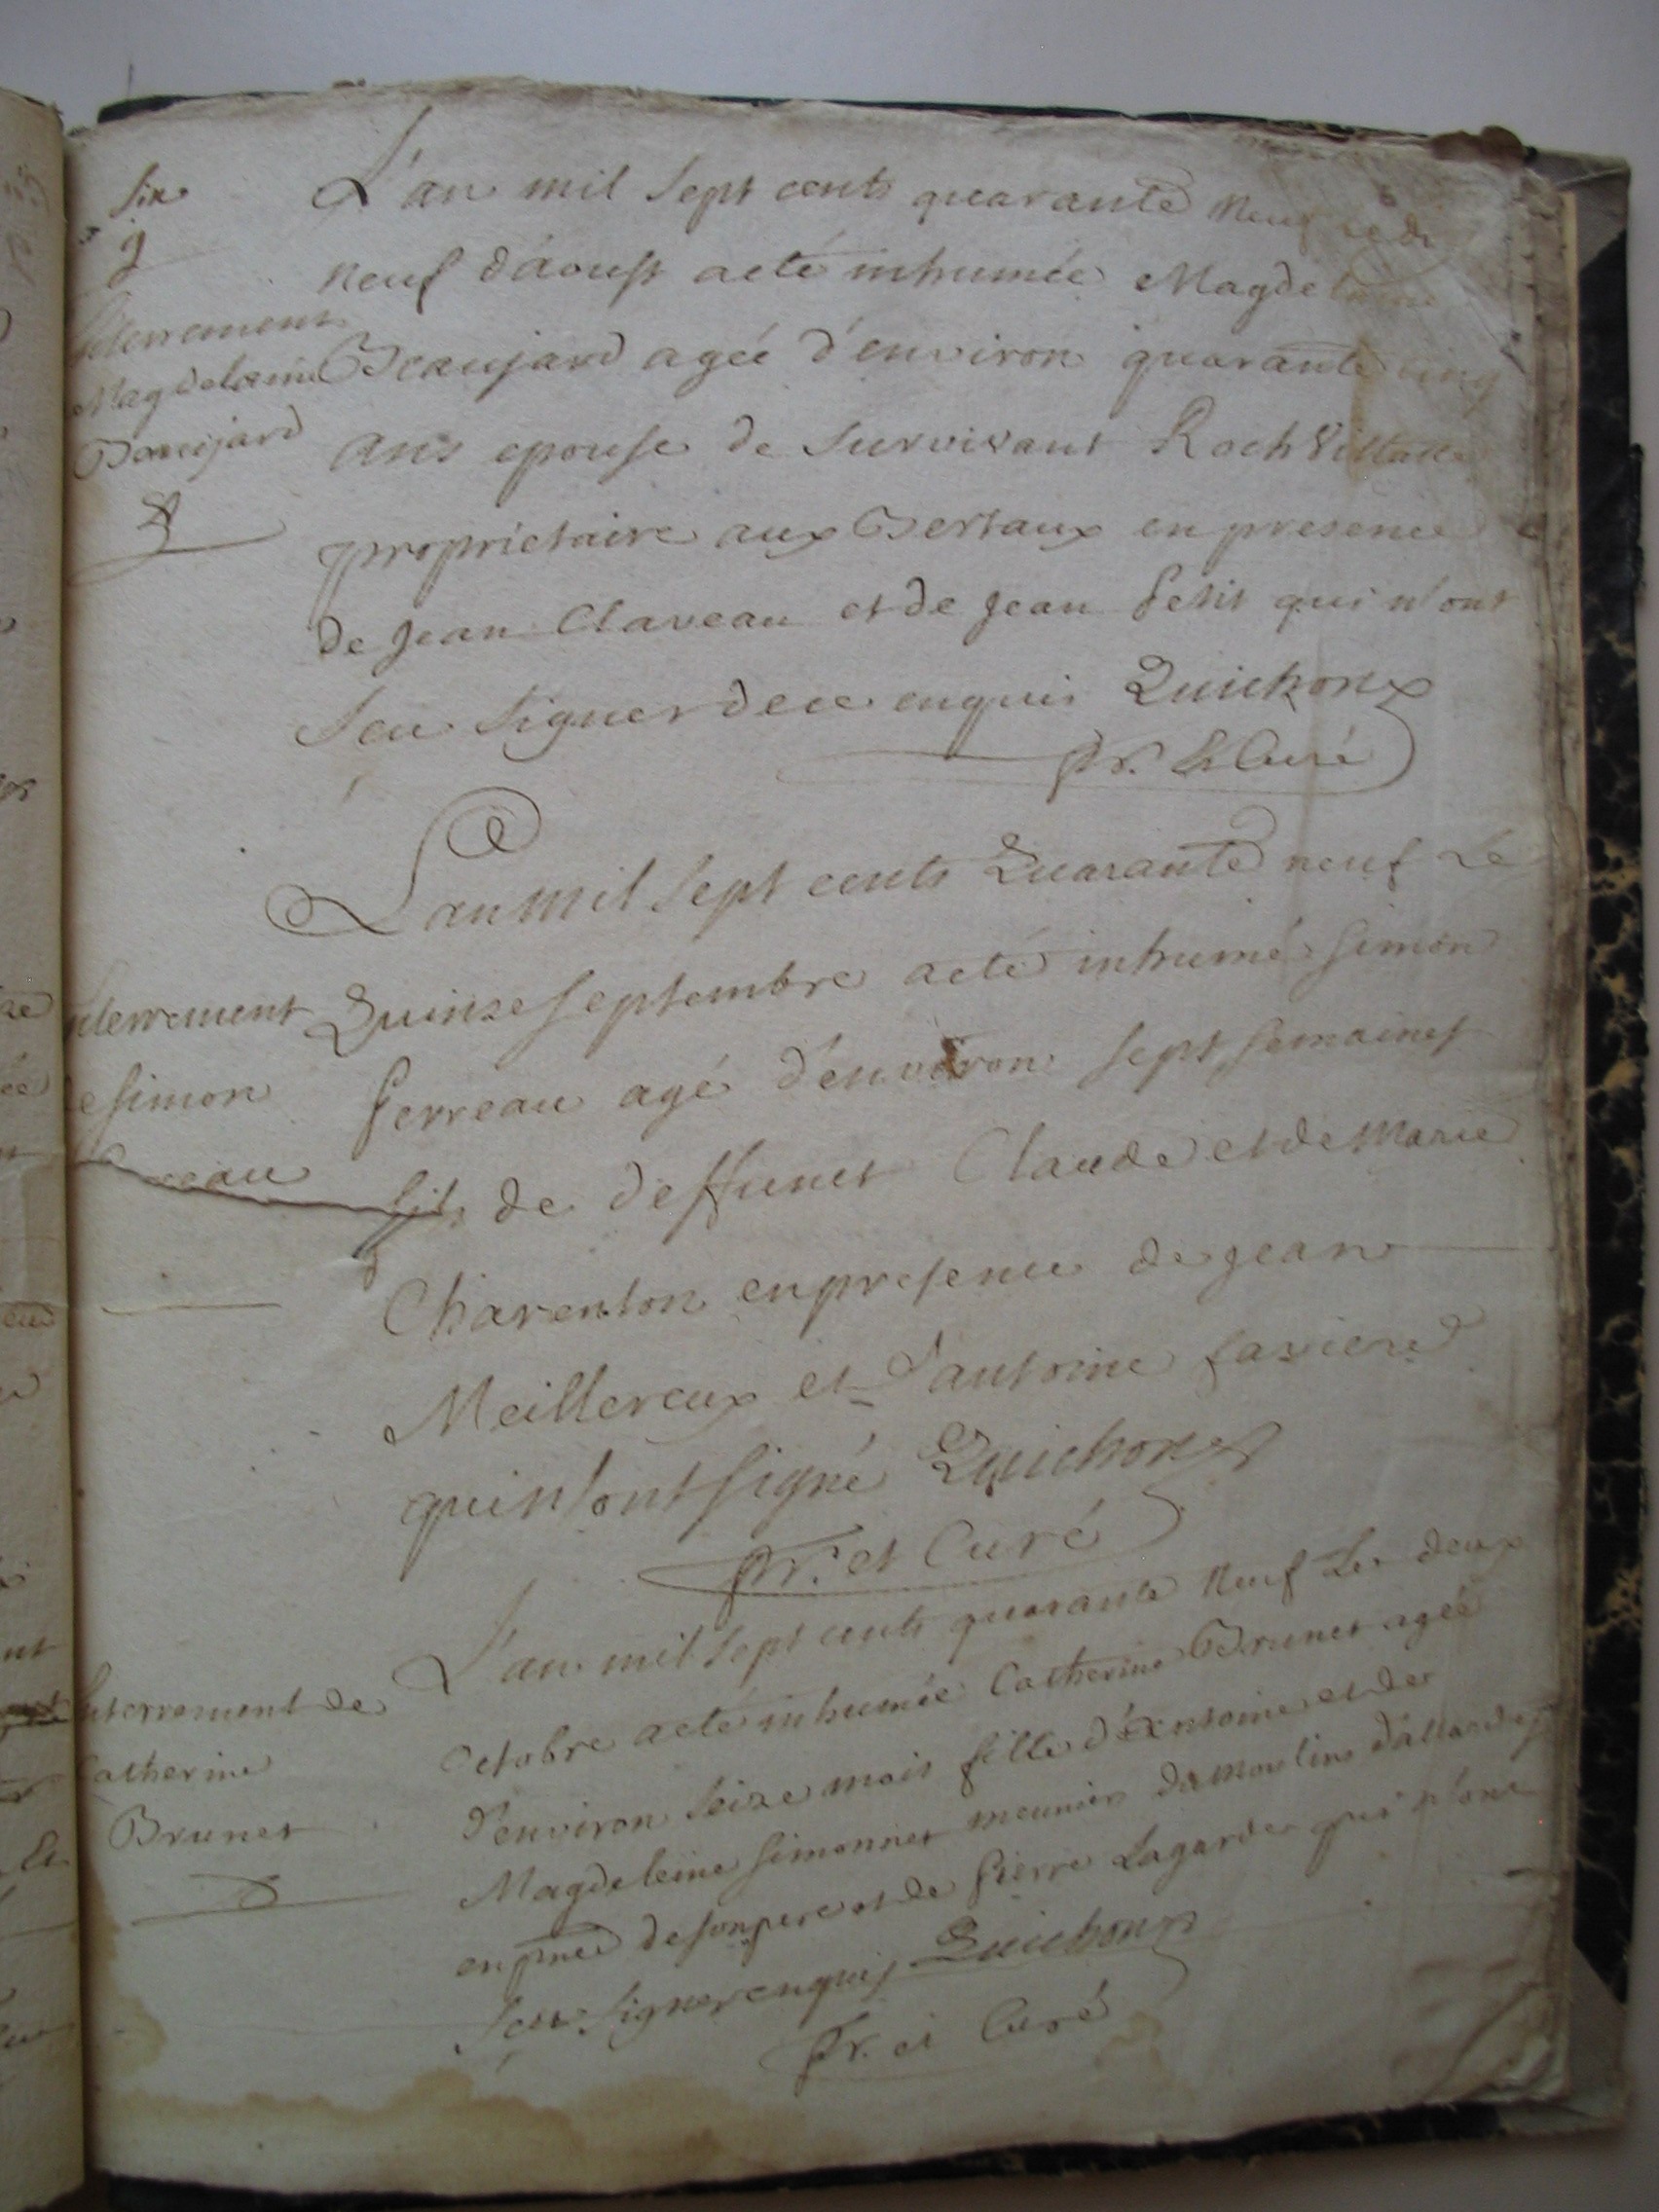 six
L'an mil sept cents quarante neuf le di
neuf d'aoust a eté inhumée Magdelaine
Enterrement
Magdelaine
Baujard
Beaujard agée d'environ quarante cinq
ans epouse de survivant Roch
proprietaire aux Bertaux en presence
de Jean Claveau et de Jean Petit qui n'ont
seu signer de ce enquis Quichon
Pr. & Curé
L'an mil sept cents Quarante neuf Le
Quinze septembre a eté inhumé simon
nterrement
e simon
reau
ferreau agé d'environ sept semaines
fils de deffunct Claude et de Marie
Charenton en presence de jean
Meillereux et d'antoine
qui n'ont signé Quichon
Pr. et Curé
L'an mil sept cents quarante Neuf Le deux
octobre a eté inhumée Catherine Brunet agée
nterrement de
atherine
Brunet
d'environ seize mois fille d'Antoine et de
Magdeleine simonnet meunier du moulin d'allardes
en pnce de son pere et de Pierre Lagarde qui n'ont
seu signer enquis Quichon
Pr. et Curé